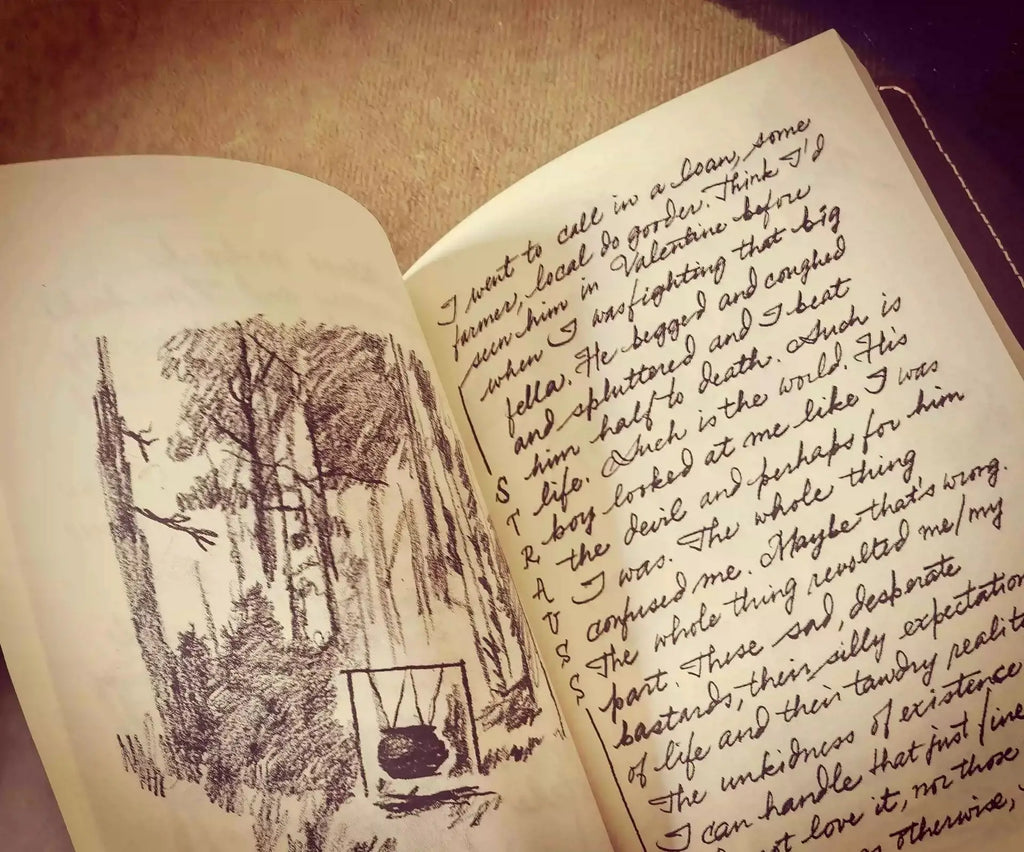 I went to call in a loan, some
farmer, local do gooder. Think I'd
seen him in Valentine before
when I was fighting that big
fella. He begged and coughed
and spluttered and I beat
him half to death. Such is
life. Such is the world. His
boy looked at me like I was
the devil and perhaps for him
I was. The whole thing
confused me. Maybe that's wrong.
The whole thing revolted me/my
part. These sad, desperate
bastards, their silly expectation
of life and their tawdry realit
The unkidness of existence
I can handle that just/ine
not love it, nor those
otherwise,
STRAUSS